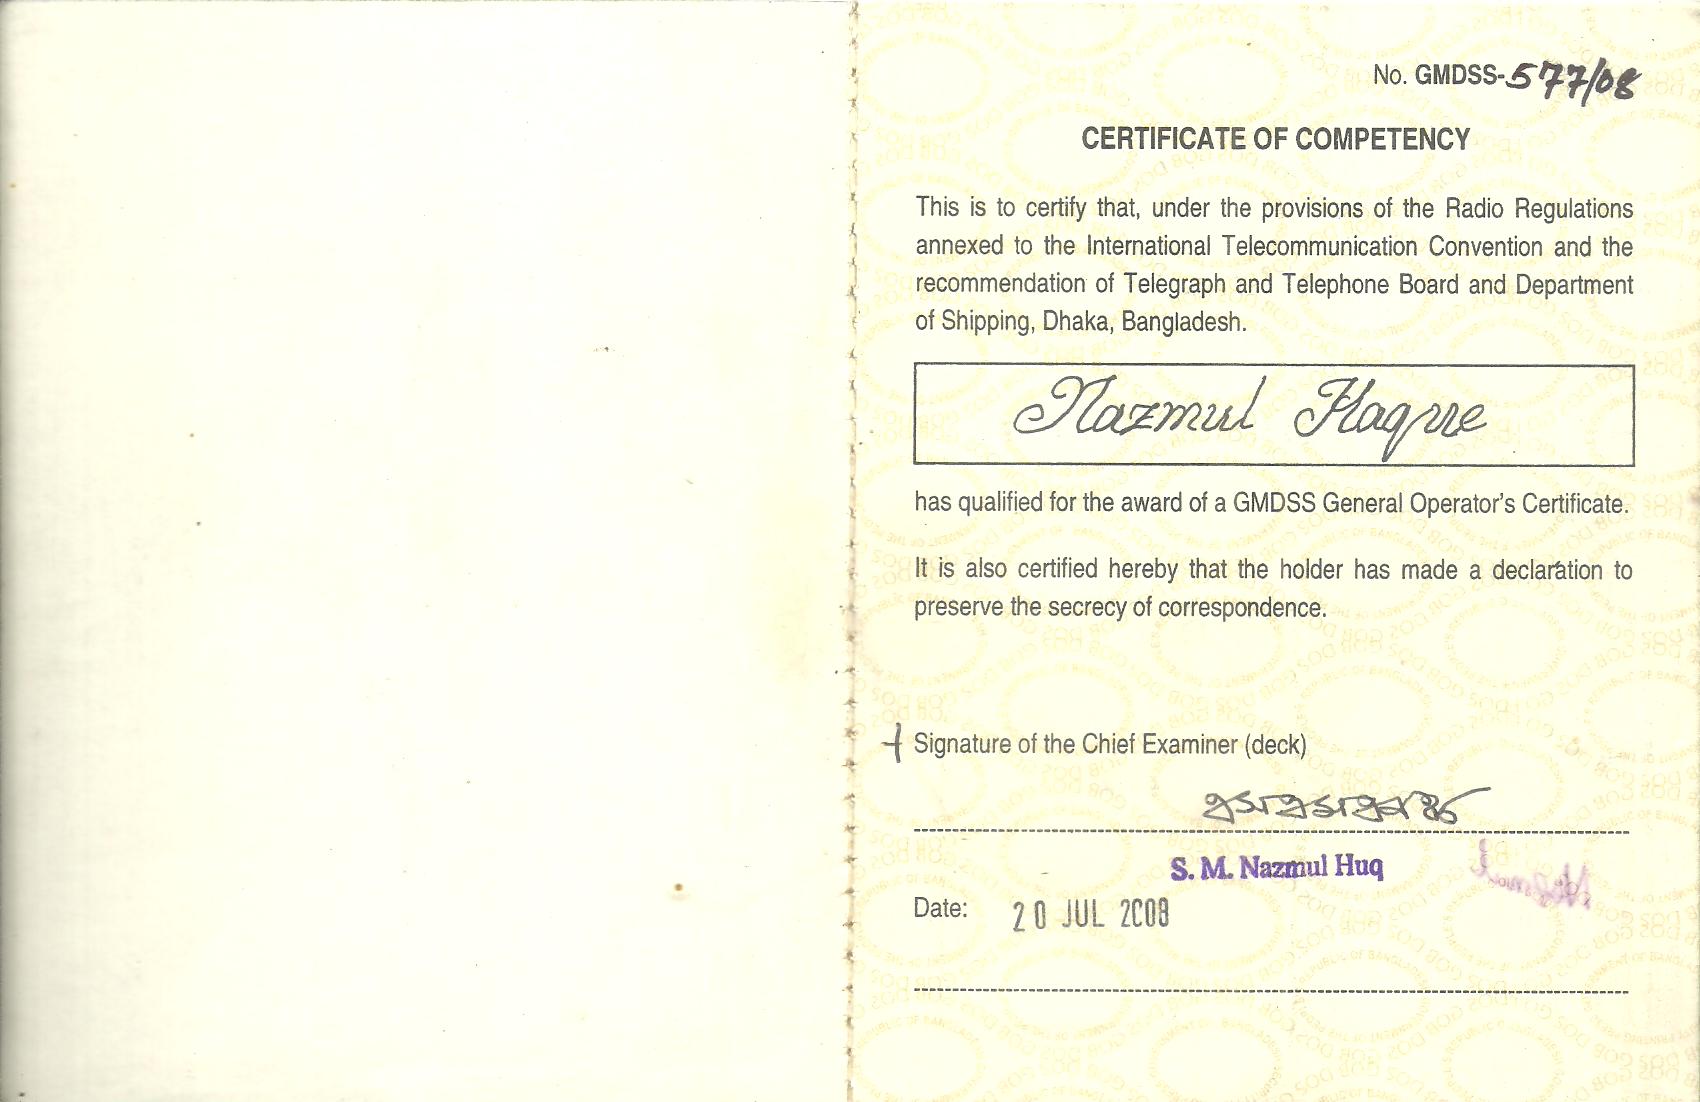 No. GMDSS-577/08
CERTIFICATE OF COMPETENCY
This is to certify that, under the provisions of the Radio Regulations
annexed to the International Telecommunication Convention and the
recommendation of Telegraph and Telephone Board and Department
of Shipping, Dhaka, Bangladesh.
Nazmul Haque
has qualified for the award of a GMDSS General Operator's Certificate.
It is also certified hereby that the holder has made a declaration to
preserve the secrecy of correspondence.
Signature of the Chief Examiner (deck)
S. M. Nazmul Huq
Date: 20 JUL 2008